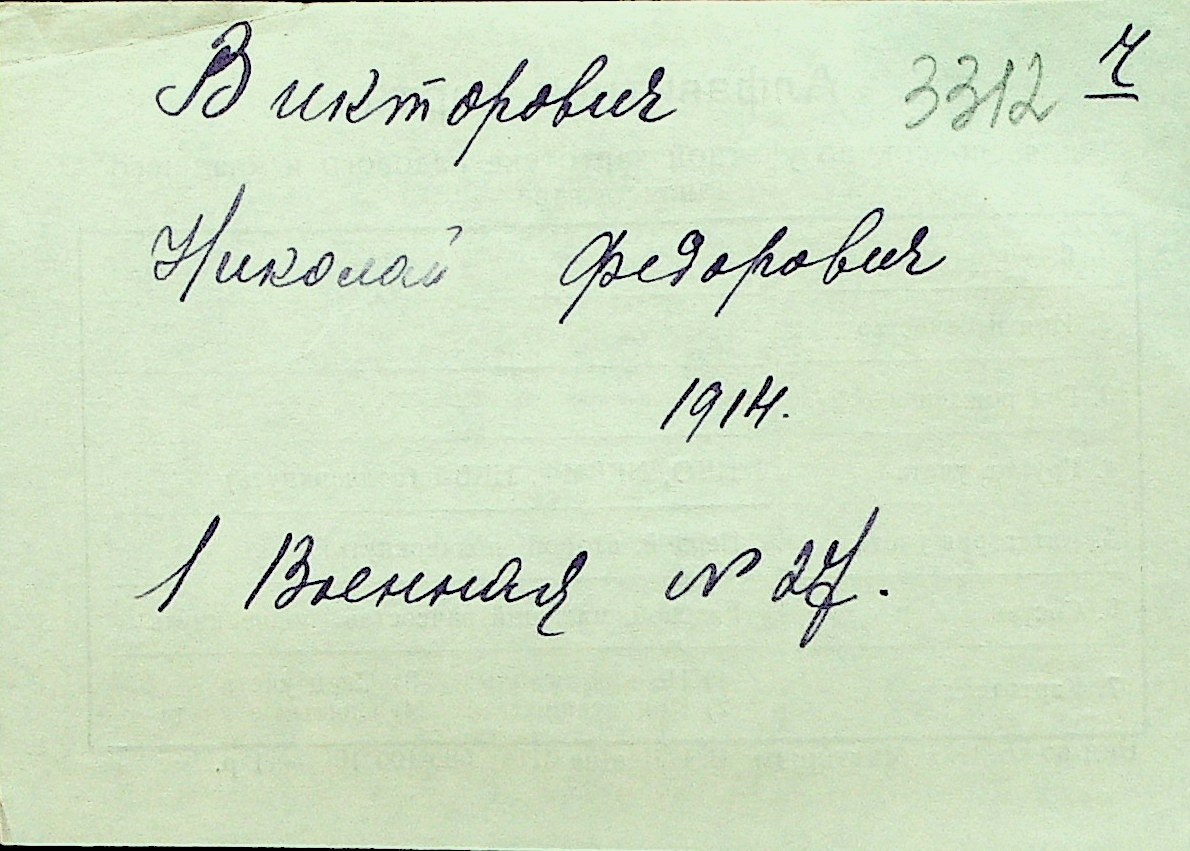 Викторович 3312 ч
Николай Федорович
1914.
1 Военная № 27.